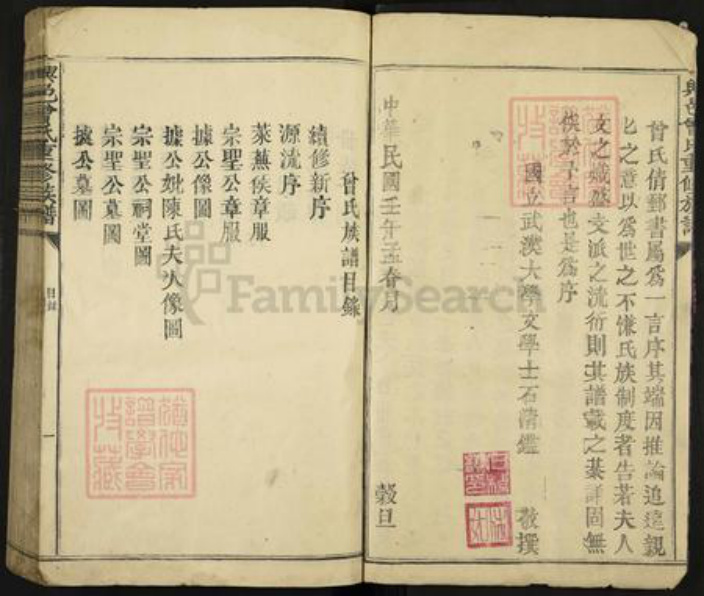 曾氏倩郵書屬爲一言序其端因推論追遠親
匕之意以爲世之不慊氏族制度者告若夫人
文之熾然支派之流衍則其譜載之綦詳固無
俟於予言也是爲序
國立武漢大學文學士石清鑑 敬撰
中華民國壬午孟春月 穀旦
曾氏族譜目錄
續修新序
源流序
萊蕪侯章服
宗聖公章服
據公像圖
據公妣陳氏夫人像圖
宗聖公祠堂圖
宗聖公墓圖
據公墓圖
曾氏重修族譜
目錄
一
FamilySearch